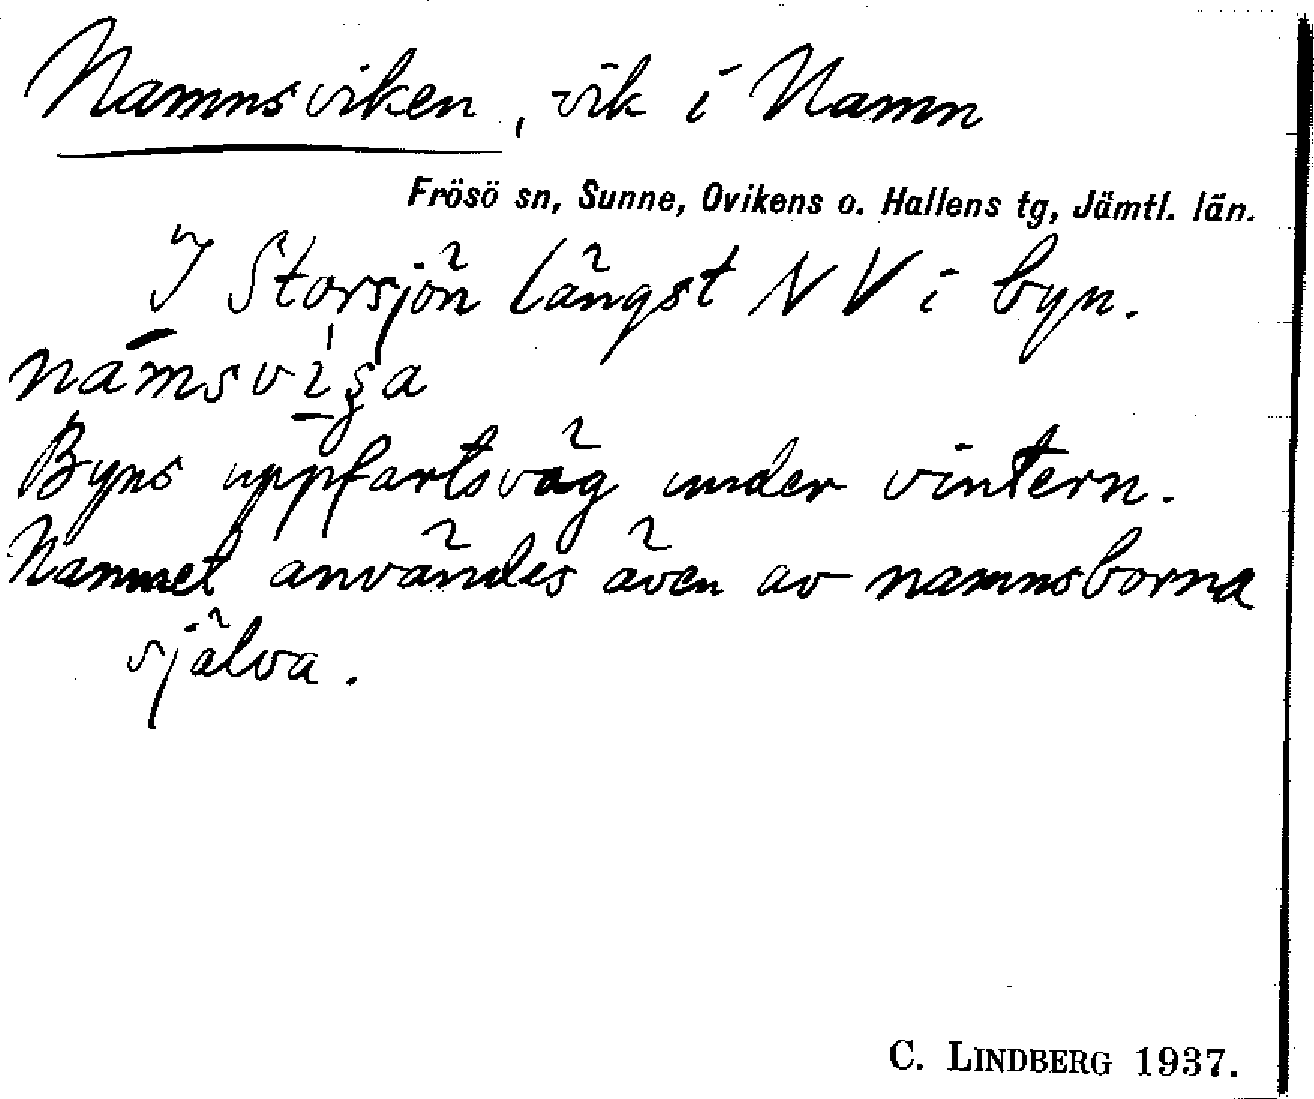 Namnsviken, vik i Namn
Frösö sn, Sunne, Ovikens o. Hallens tg, Jämtl. län.
I Storsjön längst NV i byn.
Byns uppfartsväg under vintern.
Namnet användes även av namnsborna
själva.
C. LINDBERG 1937.